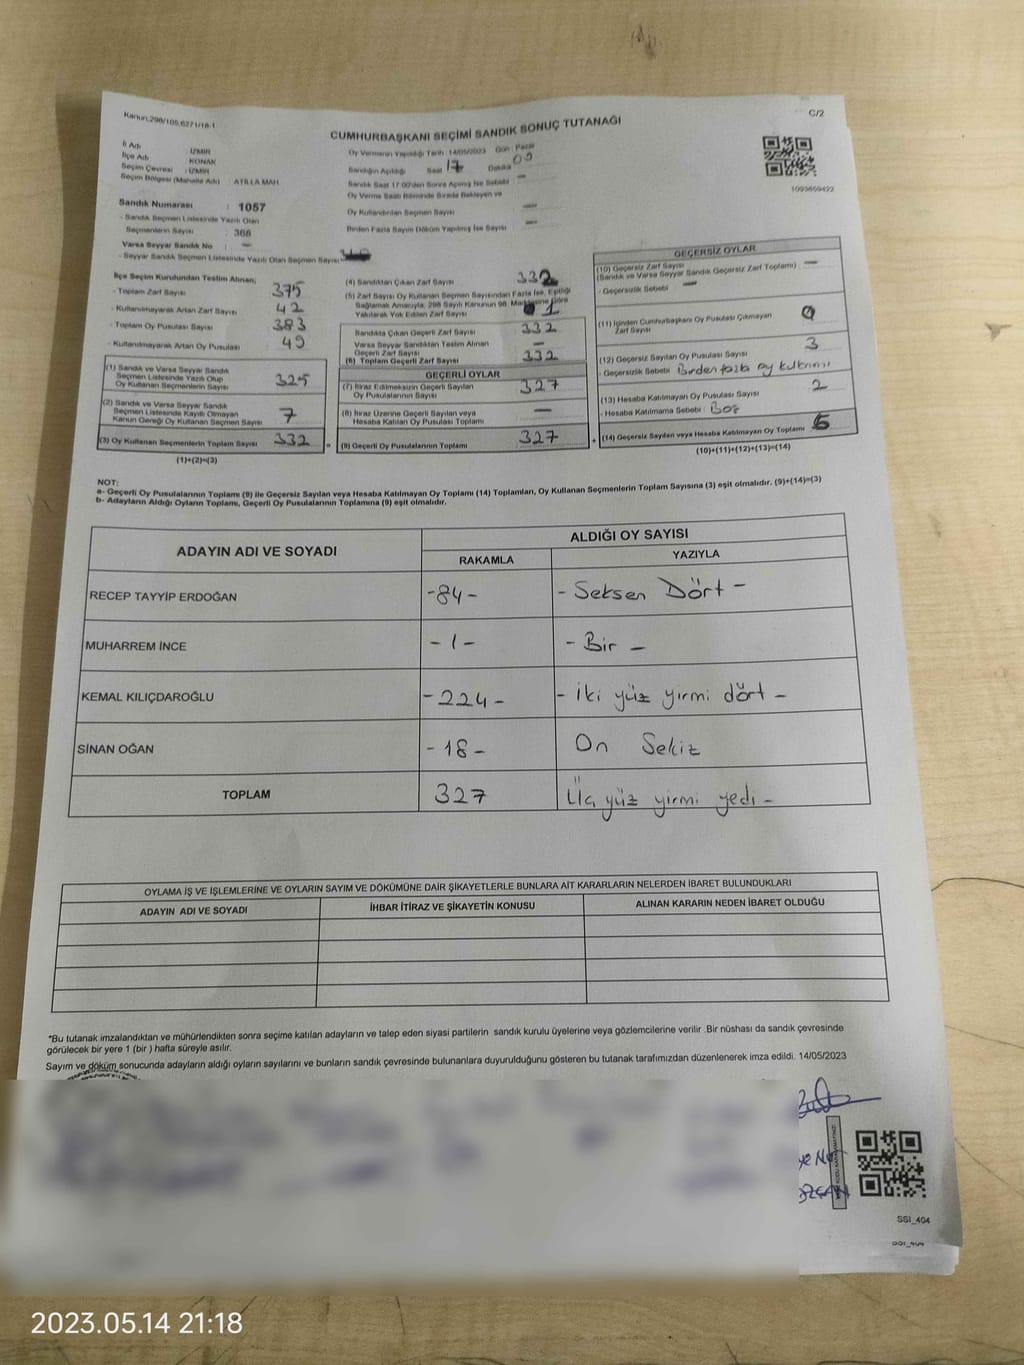 Kanun:298/105,6271/18-1
C/2
CUMHURBAŞKANI SEÇİMİ SANDIK SONUÇ TUTANAĞI
İl Adı : İZMİR
İlçe Adı : KONAK
Seçim Çevresi : İZMİR
Seçim Bölgesi (Mahalle Adı) : ATİLLA MAH.
Oy Vermenin Yapıldığı Tarih 14/05/2023 Gün : Pazar
Sandığın Açıldığı Saat 17 Dakika 00
Sandık Saat 17:00'den Sonra Açılmış İse Sebebi —
Oy Verme Saati Bitiminde Sırada Bekleyen ve
Oy Kullandırılan Seçmen Sayısı —
Birden Fazla Sayım Döküm Yapılmış İse Sayısı —
1093659422
Sandık Numarası : 1057
- Sandık Seçmen Listesinde Yazılı Olan
Seçmenlerin Sayısı : 368
Varsa Seyyar Sandık No : —
- Seyyar Sandık Seçmen Listesinde Yazılı Olan Seçmen Sayısı
İlçe Seçim Kurulundan Teslim Alınan;
- Toplam Zarf Sayısı 375
- Kullanılmayarak Artan Zarf Sayısı 42
- Toplam Oy Pusulası Sayısı 383
- Kullanılmayarak Artan Oy Pusulası 49
(1) Sandık ve Varsa Seyyar Sandık
Seçmen Listesinde Yazılı Olup
Oy Kullanan Seçmenlerin Sayısı 325
(2) Sandık ve Varsa Seyyar Sandık
Seçmen Listesinde Kayıtlı Olmayan
Kanun Gereği Oy Kullanan Seçmen Sayısı 7
(3) Oy Kullanan Seçmenlerin Toplam Sayısı 332
(1)+(2)=(3)
(4) Sandıktan Çıkan Zarf Sayısı 332
(5) Zarf Sayısı Oy Kullanan Seçmen Sayısından Fazla İse, Eşitliği
Sağlamak Amacıyla, 298 Sayılı Kanunun 98. Maddesine Göre
Yakılarak Yok Edilen Zarf Sayısı 1
Sandıkta Çıkan Geçerli Zarf Sayısı 332
Varsa Seyyar Sandıktan Teslim Alınan
Geçerli Zarf Sayısı —
(6) Toplam Geçerli Zarf Sayısı 332
GEÇERLİ OYLAR
(7) İtiraz Edilmeksizin Geçerli Sayılan
Oy Pusulalarının Sayısı 327
(8) İtiraz Üzerine Geçerli Sayılan veya
Hesaba Katılan Oy Pusulası Toplamı —
(9) Geçerli Oy Pusulalarının Toplamı 327
GEÇERSİZ OYLAR
(10) Geçersiz Zarf Sayısı
(Sandık ve Varsa Seyyar Sandık Geçersiz Zarf Toplamı) —
- Geçersizlik Sebebi —
(11) İçinden Cumhurbaşkanı Oy Pusulası Çıkmayan
Zarf Sayısı
(12) Geçersiz Sayılan Oy Pusulası Sayısı 3
- Geçersizlik Sebebi Birden fazla oy kullanımı
(13) Hesaba Katılmayan Oy Pusulası Sayısı 2
- Hesaba Katılmama Sebebi : Boş
(14) Geçersiz Sayılan veya Hesaba Katılmayan Oy Toplamı
(10)+(11)+(12)+(13)=(14)
NOT:
a- Geçerli Oy Pusulalarının Toplamı (9) ile Geçersiz Sayılan veya Hesaba Katılmayan Oy Toplamı (14) Toplamları, Oy Kullanan Seçmenlerin Toplam Sayısına (3) eşit olmalıdır. (9)+(14)=(3)
b- Adayların Aldığı Oyların Toplamı, Geçerli Oy Pusulalarının Toplamına (9) eşit olmalıdır.
ADAYIN ADI VE SOYADI
ALDIĞI OY SAYISI
RAKAMLA YAZIYLA
RECEP TAYYİP ERDOĞAN -84- - Seksen Dört -
MUHARREM İNCE -1- - Bir -
KEMAL KILIÇDAROĞLU -224- - iki yüz yirmi dört -
SİNAN OĞAN -18- On Sekiz
TOPLAM 327 Üç yüz yirmi yedi -
OYLAMA İŞ VE İŞLEMLERİNE VE OYLARIN SAYIM VE DÖKÜMÜNE DAİR ŞİKAYETLERLE BUNLARA AİT KARARLARIN NELERDEN İBARET BULUNDUKLARI
ADAYIN ADI VE SOYADI İHBAR İTİRAZ VE ŞİKAYETİN KONUSU ALINAN KARARIN NEDEN İBARET OLDUĞU
*Bu tutanak imzalandıktan ve mühürlendikten sonra seçime katılan adayların ve talep eden siyasi partilerin sandık kurulu üyelerine veya gözlemcilerine verilir .Bir nüshası da sandık çevresinde
görülecek bir yere 1 (bir ) hafta süreyle asılır.
Sayım ve döküm sonucunda adayların aldığı oyların sayılarını ve bunların sandık çevresinde bulunanlara duyurulduğunu gösteren bu tutanak tarafımızdan düzenlenerek imza edildi. 14/05/2023
SSI_404
2023.05.14 21:18